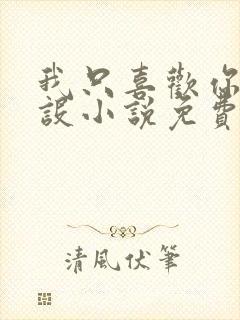 我只喜歡你
設小說免費
清風伏筆